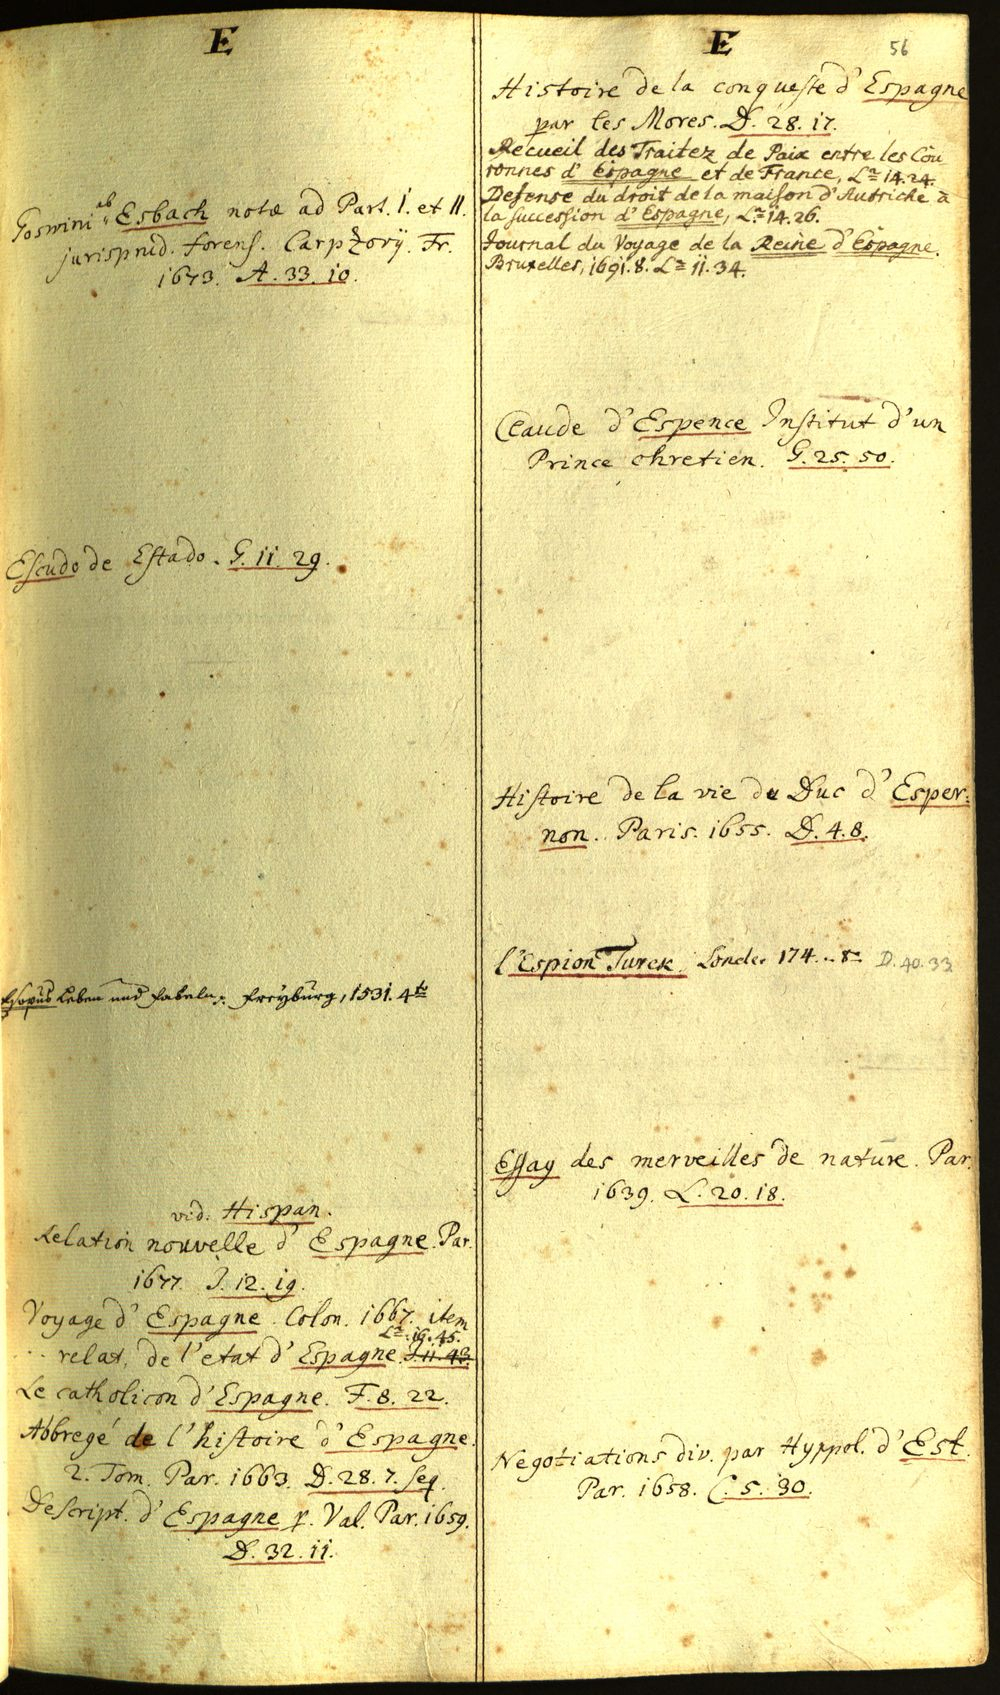 E
Goswini ab Esbach notæ ad Part. I. et II.
jurisprud. forens. Carpzovij. Fr.
1673. A. 33. 10.
Escudo de Estado. G. 11. 29.
Esopus Leben und Fabeln. Freyburg, 1531. 4to
vid. Hispan.
Relation nouvelle d'Espagne. Par.
1677. J. 12. 19.
Voyage d'Espagne. Colon. 1667. item
La. 19. 45.
relat. de l'etat d'Espagne. J. 11. 43
Le catholicon d'Espagne. F. 8. 22.
Abbregé de l'histoire d'Espagne.
2. Tom. Par. 1663. D. 28. 7. seq.
Descript. d'Espagne p. Val. Par. 1659.
D. 32. 11.
E
56
Histoire de la conqueste d'Espagne
par les Mores. D. 28. 17.
Recueil des Traitez de Paix entre les Cou-
ronnes d'Espagne et de France, La 14. 24.
Defense du droit de la maison d'Autriche à
la succession d'Espagne, La 14. 26.
Journal du Voyage de la Reine d'Espagne.
Bruxelles, 1691. 8. La 11. 34.
Claude d'Espence Institut d'un
Prince chretien. G. 25. 50.
Histoire de la vie du Duc d'Esper-
non. Paris. 1655. D. 4. 8.
l'Espion Turck, Londr. 174.. 8o D. 40. 33
Essay des merveilles de nature. Par.
1639. L. 20. 18.
Negotiations div. par Hyppol. d'Est.
Par. 1658. C. 5. 30.